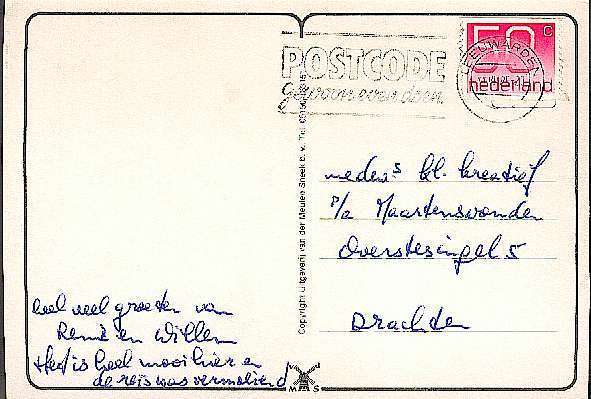 50 c
nederland
LEEUWARDEN
POSTCODE
gewoon even doen.
Copyright Uitgeverij van der Meulen Sneek b.v. Tel.
medew.s kl. kreatief
p/a Maartenswouden
Overstesingel 5
Drachten
heel veel groeten van
René en Willem
Het is heel mooi hier en
de reis was vermoeiend
M S